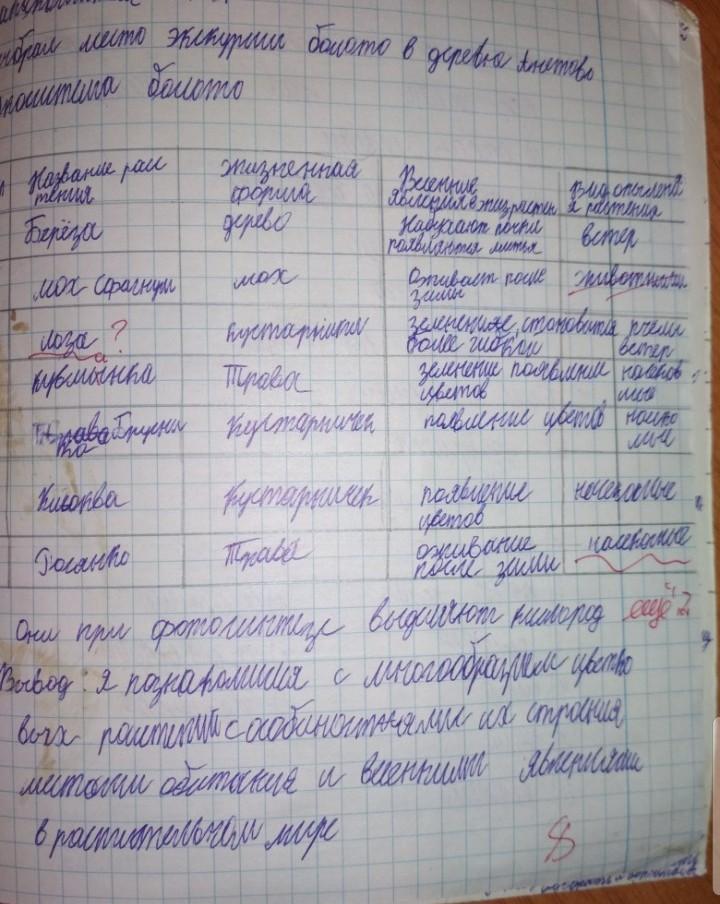 выбрал место экскурсии болото в деревне Анетово
экосистема болото
Название рас Жизненная Весенние Вид опылени
тения форма явления в жизни растен я растения
Берёза дерево Набухают почки ветер
появляются листья
мох сфагнум мох Оживает после животными
зимы
лоза ? кустарники зеленение, становится пчёлы
более гибкой ветер
кувшинка Трава зеленение появление насеко
цветов мые
Брусни Кустарничек появление цветов насеко
ка мые
Клюква Кустарничек появление насекомые
цветов
Росянка Трава оживание насекомые
после зимы
Они при фотосинтезе выделяют кислород ещё ?
Вывод: я познакомился с многообразием цветко
вых растений с особиностями их строения
местами обитания и весенними явлениями
в растительном мире
8